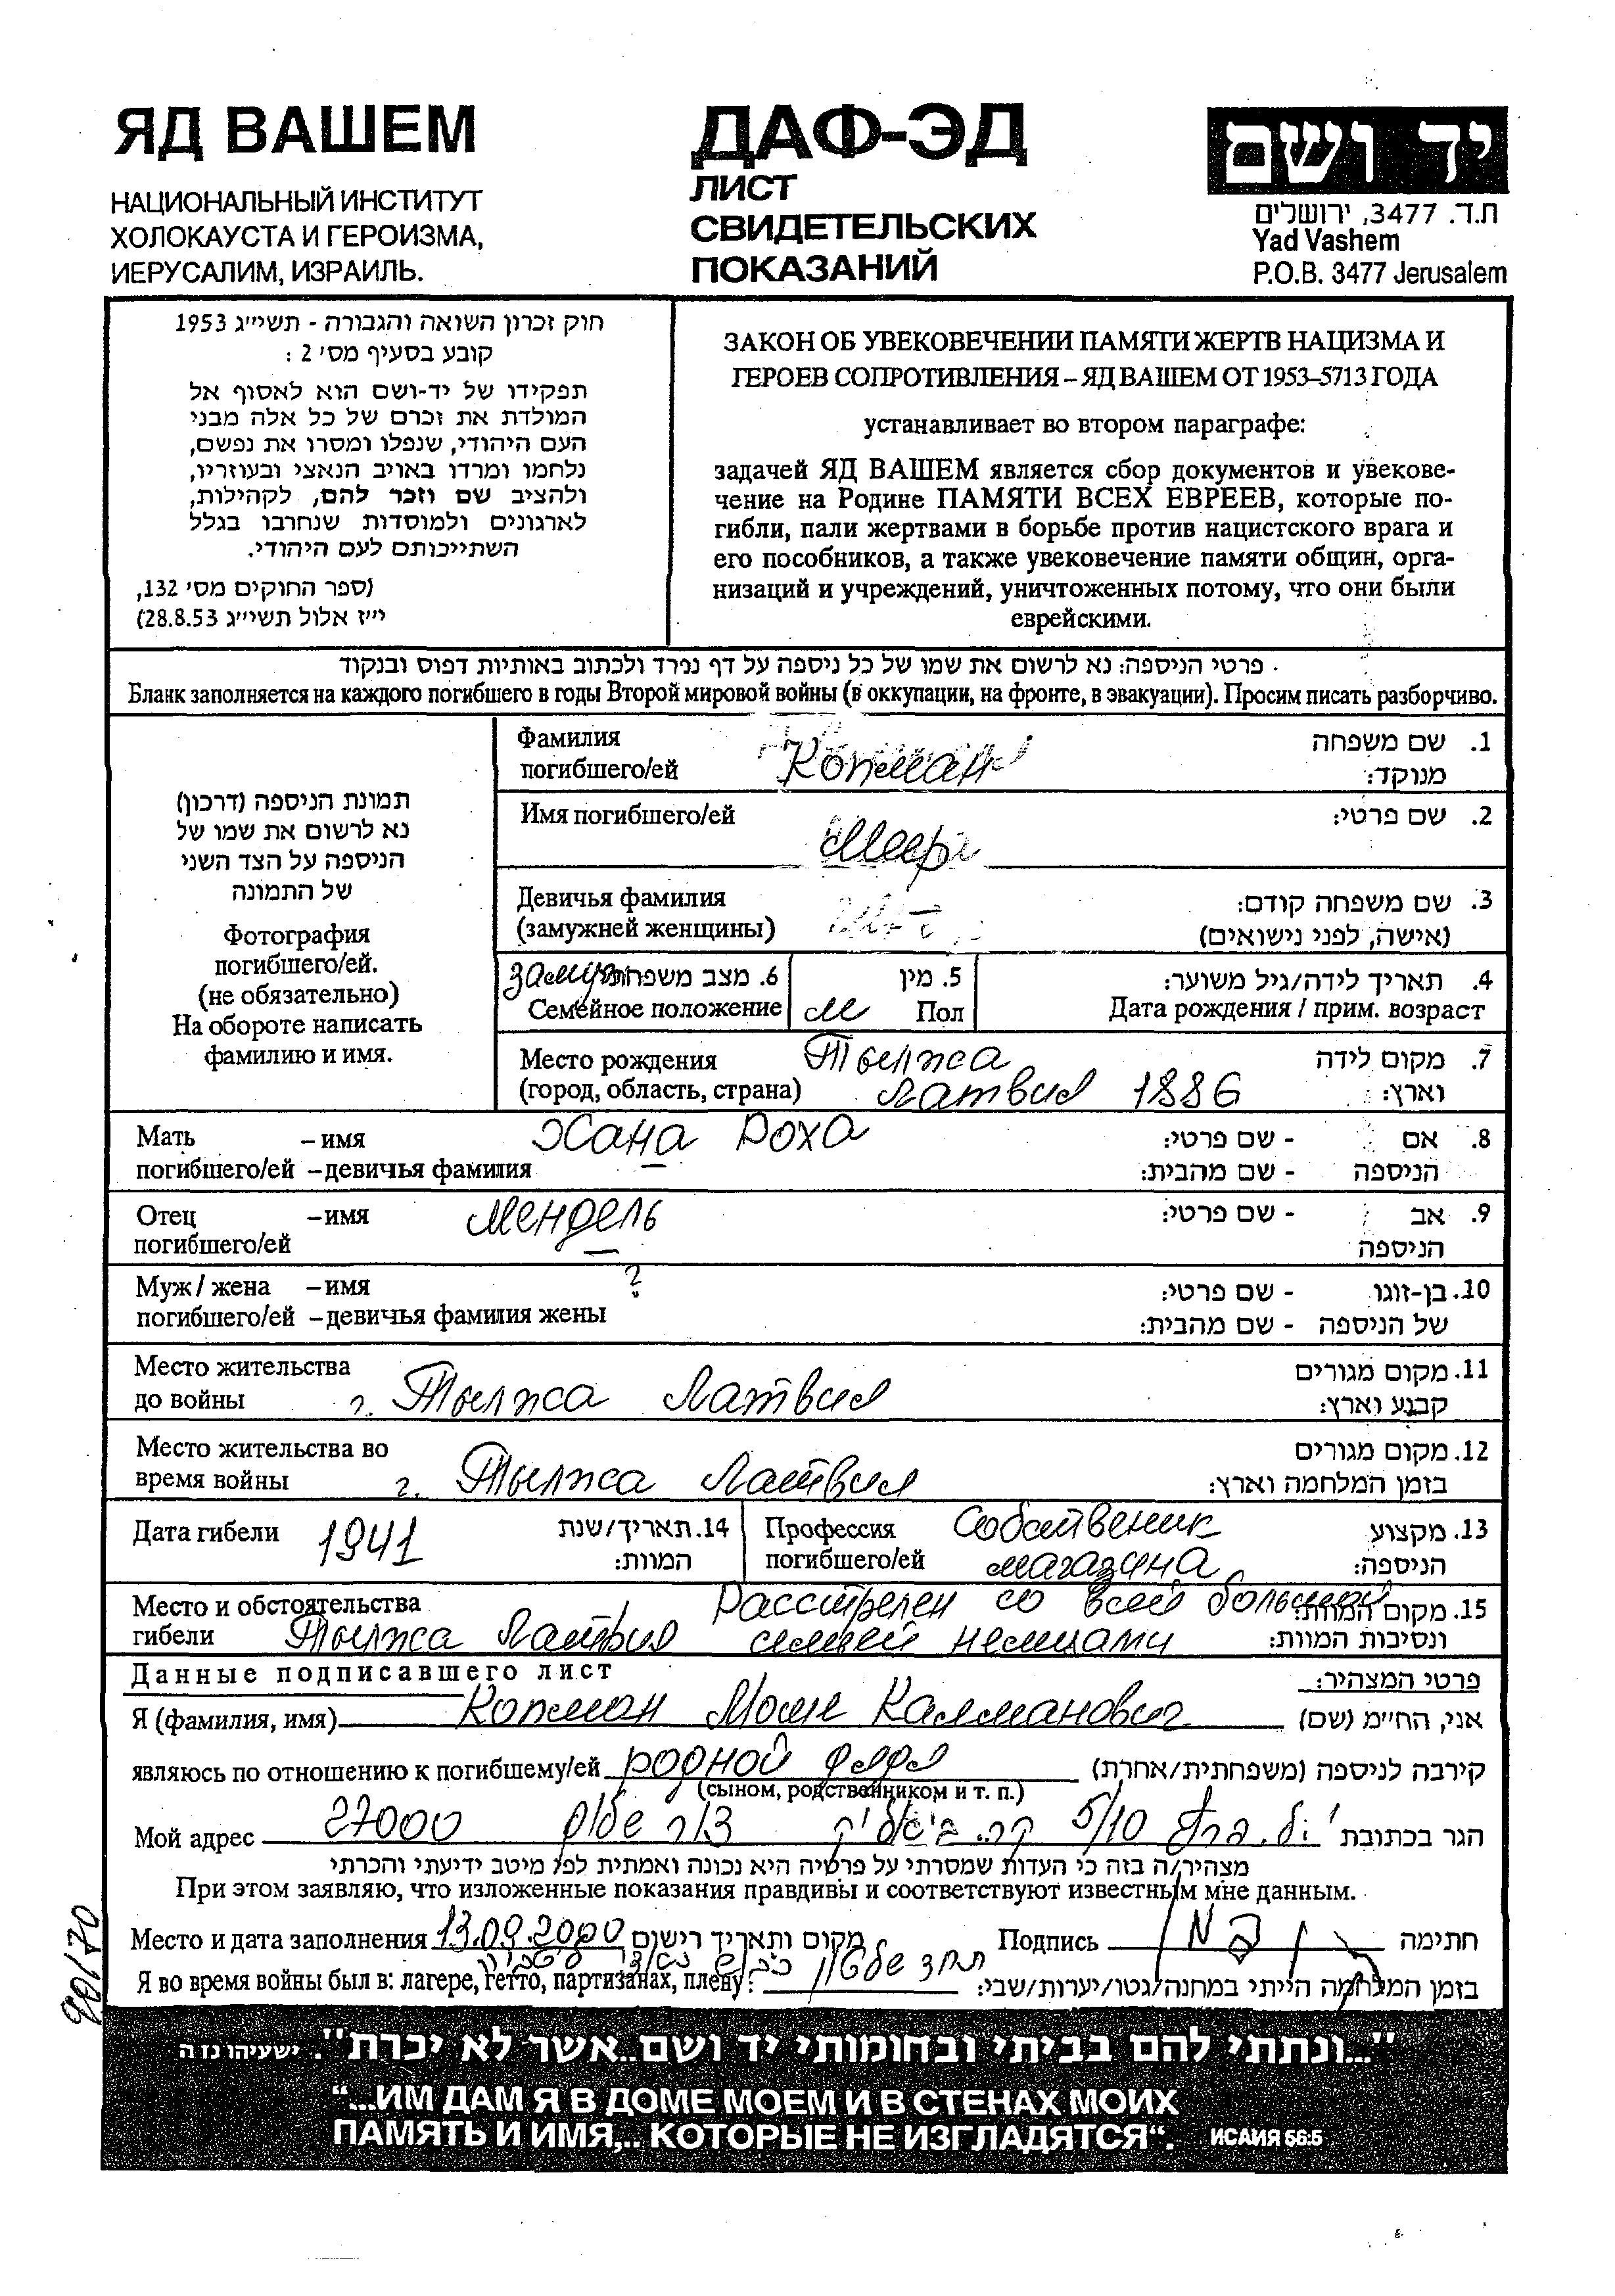 ЯД ВАШЕМ
НАЦИОНАЛЬНЫЙ ИНСТИТУТ
ХОЛОКАУСТА И ГЕРОИЗМА,
ИЕРУСАЛИМ, ИЗРАИЛЬ.
ДАФ-ЭД
ЛИСТ
СВИДЕТЕЛЬСКИХ
ПОКАЗАНИЙ
יד ושם
ת.ד. 3477, ירושלים
Yad Vashem
P.O.B. 3477 Jerusalem
חוק זכרון השואה והגבורה - תשי״ג 1953
קובע בסעיף מס׳ 2 :
תפקידו של יד-ושם הוא לאסוף אל
המולדת את זכרם של כל אלה מבני
העם היהודי, שנפלו ומסרו את נפשם,
נלחמו ומרדו באויב הנאצי ובעוזריו,
ולהציב שם וזכר להם, לקהילות,
לארגונים ולמוסדות שנחרבו בגלל
השתייכותם לעם היהודי.
(ספר החוקים מס׳ 132,
י״ז אלול תשי״ג 28.8.53)
ЗАКОН ОБ УВЕКОВЕЧЕНИИ ПАМЯТИ ЖЕРТВ НАЦИЗМА И
ГЕРОЕВ СОПРОТИВЛЕНИЯ – ЯД ВАШЕМ ОТ 1953–5713 ГОДА
устанавливает во втором параграфе:
задачей ЯД ВАШЕМ является сбор документов и увекове-
чение на Родине ПАМЯТИ ВСЕХ ЕВРЕЕВ, которые по-
гибли, пали жертвами в борьбе против нацистского врага и
его пособников, а также увековечение памяти общин, орга-
низаций и учреждений, уничтоженных потому, что они были
еврейскими.
פרטי הניספה: נא לרשום את שמו של כל ניספה על דף נפרד ולכתוב באותיות דפוס ובנקוד
Бланк заполняется на каждого погибшего в годы Второй мировой войны (в оккупации, на фронте, в эвакуации). Просим писать разборчиво.
תמונת הניספה (דרכון)
נא לרשום את שמו של
הניספה על הצד השני
של התמונה
Фотография
погибшего/ей.
(не обязательно)
На обороте написать
фамилию и имя.
Фамилия Копман 1. שם משפחה
погибшего/ей מנוקד:
Имя погибшего/ей Меер 2. שם פרטי:
Девичья фамилия 3. שם משפחה קודם:
(замужней женщины) (אישה, לפני נישואים)
6. מצב משפחתי 5. מין 4. תאריך לידה/גיל משוער:
Семейное положение м Пол Дата рождения / прим. возраст
Место рождения Тылжа 7. מקום לידה
(город, область, страна) Латвия 1886 וארץ:
Мать – имя Хана Роха 8. אם - שם פרטי:
погибшего/ей – девичья фамилия — הניספה - שם מהבית:
Отец – имя Мендель 9. אב - שם פרטי:
погибшего/ей — הניספה
Муж / жена – имя ? 10. בן-זוגו - שם פרטי:
погибшего/ей – девичья фамилия жены של הניספה - שם מהבית:
Место жительства 11. מקום מגורים
до войны г. Тылжа Латвия קבוע וארץ:
Место жительства во 12. מקום מגורים
время войны г. Тылжа Латвия בזמן המלחמה וארץ:
Дата гибели 1941 14. תאריך/שנת המוות:
Профессия Собственик 13. מקצוע
погибшего/ей магазина הניספה:
Место и обстоятельства Расстрелен со всей большой 15. מקום המוות
гибели Тылжа Латвия семьей немцами ונסיבות המוות:
Данные подписавшего лист פרטי המצהיר:
Я (фамилия, имя) Копман Моше Калманович אני, החי״מ (שם)
являюсь по отношению к погибшему/ей родной дядя קירבה לניספה (משפחתית/אחרת)
(сыном, родственником и т. п.)
Мой адрес 27000 5/10 קר. ביאליק הגר בכתובת
מצהיר/ה בזה כי העדות שמסרתי על פרטיה היא נכונה ואמתית לפי מיטב ידיעתי והכרתי
При этом заявляю, что изложенные показания правдивы и соответствуют известным мне данным.
Место и дата заполнения 13.09.2000 מקום ותאריך רישום Подпись חתימה
Я во время войны был в: лагере, гетто, партизанах, плену: בזמן המלחמה הייתי במחנה/גטו/יערות/שבי:
90/70
"...ונתתי להם בביתי ובחומותי יד ושם...אשר לא יכרת". ישעיהו נז ה
“...ИМ ДАМ Я В ДОМЕ МОЕМ И В СТЕНАХ МОИХ
ПАМЯТЬ И ИМЯ,.. КОТОРЫЕ НЕ ИЗГЛАДЯТСЯ“. ИСАИЯ 56:5